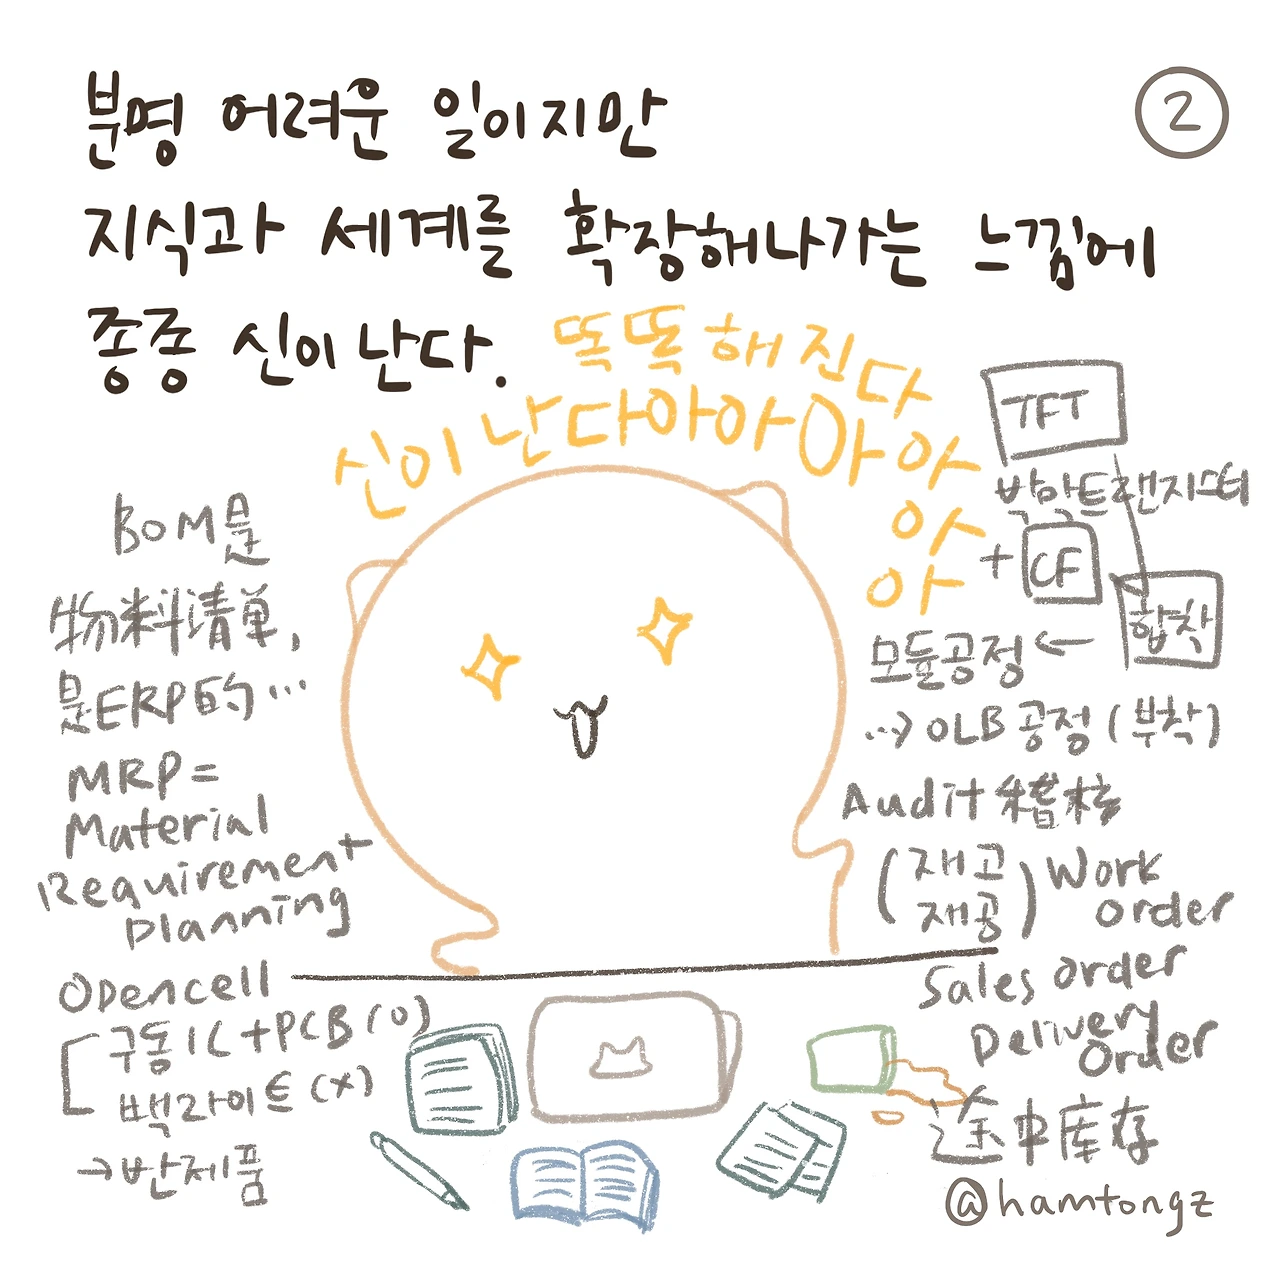 분명 어려운 일이지만
지식과 세계를 확장해나가는 느낌에
종종 신이 난다.
②
똑똑해진다
신이 난다아아아아
아
아
BOM是
物料清单,
是ERP的…
MRP=
Material
Requirement
Planning
Opencell
구동IC+PCB(O)
백라이트(X)
→반제품
TFT
박막트랜지스터
+ CF
합착
모듈공정 ←
…> OLB공정(부착)
Audit 稽核
(재고
재공)
Work
order
Sales order
Delivery
Order
途中库存
@hamtongz